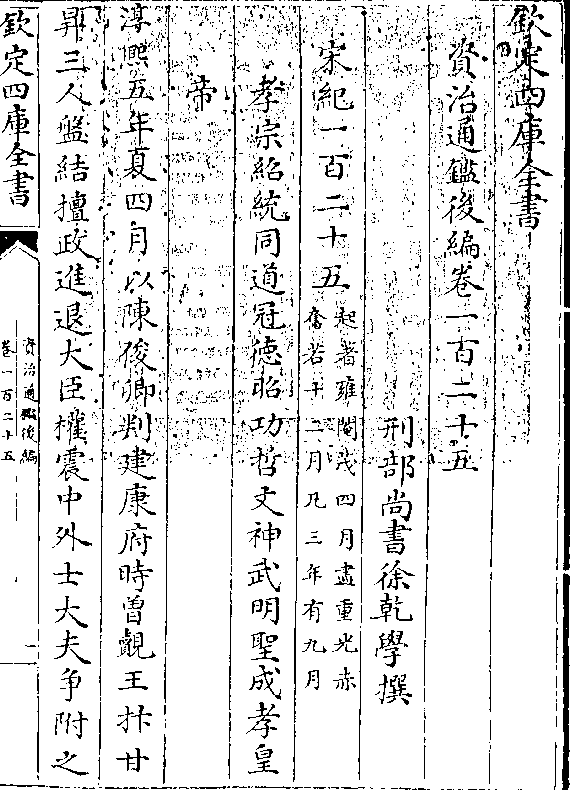 欽定四庫全書
資治通鑑後編卷一百二十五
刑部尚書徐乾學撰
宋紀一百二十五
起著雍閹茂四月盡重光赤
奮若十二月凡三年有九月
孝宗紹統同道冠徳昭功哲文神武明聖成孝皇
帝
淳熙五年夏四月以陳俊卿判建康府時曽覿王抃甘
昇三人盤結擅政進退大臣權震中外士大夫争附之
欽定四庫全書
資治通鑑後編
卷一百二十五
一